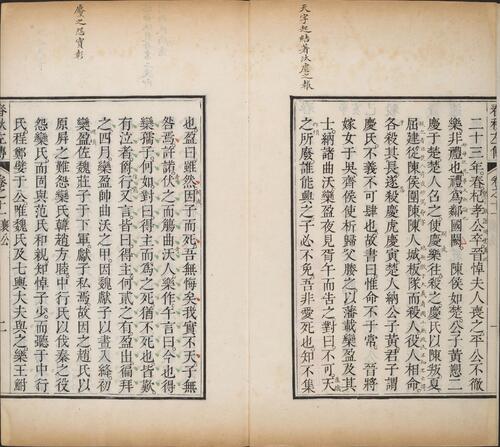 二十三年春杞孝公卒晉悼夫人喪之平公不徹
樂非禮也禮為鄰國闕　陳侯如楚公子黃愬二
慶于楚楚人召之使慶樂往殺之慶氏以陳叛夏
屈建從陳侯圍陳陳人城板隊而殺人役人相命
各殺其長遂殺慶虎慶寅楚人納公子黃君子謂
慶氏不義不可肆也故書曰惟命不于常　晉將
嫁女于吳齊侯使析歸父媵之以藩載欒盈及其
士納諸曲沃欒盈夜見胥午而告之對曰不可天
之所廢誰能興之子必不免吾非愛死也知不集
也盈曰雖然因子而死吾無悔矣我實不天子無
咎焉許諾伏之而觴曲沃人樂作午言曰今也得
欒孺子何如對曰得主而為之死猶不死也皆歎
有泣者爵行又言皆曰得主何貳之有盈出徧拜
之四月欒盈帥曲沃之甲因魏獻子以晝入絳初
欒盈佐魏莊子于下軍獻子私焉故因之趙氏以
原屏之難怨欒氏韓趙方睦中行氏以伐秦之役
怨欒氏而固與范氏和親知悼子少而聽于中行
氏程鄭嬖于公唯魏氏及七輿大夫與之樂王鮒
春秋左傳　卷之十一　襄公　二